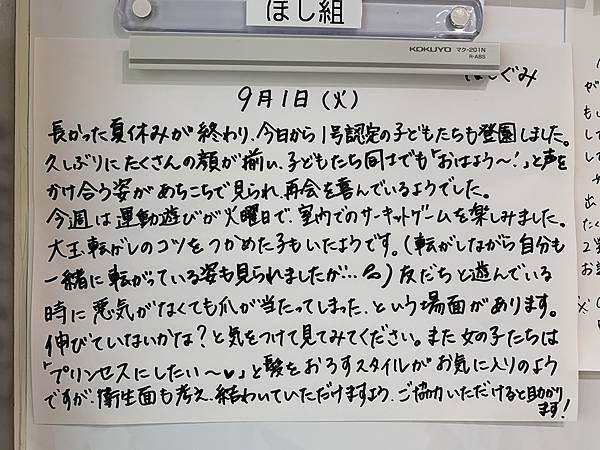 ほし組
KOKUYO マク-201N
R-ABS
ほしぐみ
9月1日(火)
長かった夏休みが終わり、今日から1号認定の子どもたちも登園しました。
久しぶりにたくさんの顔が揃い、子どもたち同士でも「おはよう〜!」と声を
かけ合う姿があちこちで見られ、再会を喜んでいるようでした。
今週は運動遊びが火曜日で、室内でのサーキットゲームを楽しみました。
大玉転がしのコツをつかめた子もいたようです。(転がしながら自分も
一緒に転がっている姿も見られましたが…)友だちと遊んでいる
時に悪気がなくても爪が当たってしまった、という場面があります。
伸びていないかな?と気をつけて見てみてください。また女の子たちは
「プリンセスにしたい〜♥」と髪をおろすスタイルがお気に入りのよう
ですが、衛生面も考え、結わいていただけますよう、ご協力いただけると助かり
ます!